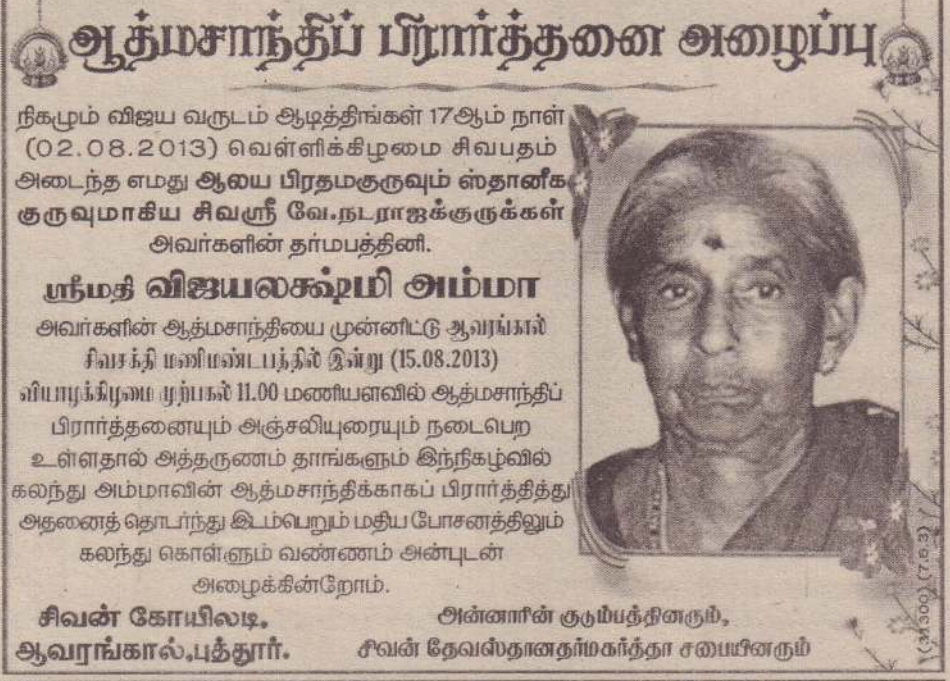 ஆத்மசாந்திப் பிரார்த்தனை அழைப்பு
நிகழும் விஜய வருடம் ஆடித்திங்கள் 17ஆம் நாள்
(02.08.2013) வெள்ளிக்கிழமை சிவபதம்
அடைந்த எமது ஆலய பிரதமகுருவும் ஸ்தானீக
குருவுமாகிய சிவஸ்ரீ வே.நடராஜக்குருக்கள்
அவர்களின் தர்மபத்தினி.
ஸ்ரீமதி விஜயலக்ஷ்மி அம்மா
அவர்களின் ஆத்மசாந்தியை முன்னிட்டு ஆவரங்கால்
சிவசக்தி மணிமண்டபத்தில் இன்று (15.08.2013)
வியாழக்கிழமை முற்பகல் 11.00 மணியளவில் ஆத்மசாந்திப்
பிரார்த்தனையும் அஞ்சலியுரையும் நடைபெற
உள்ளதால் அத்தருணம் தாங்களும் இந்நிகழ்வில்
கலந்து அம்மாவின் ஆத்மசாந்திக்காகப் பிரார்த்தித்து
அதனைத் தொடர்ந்து இடம்பெறும் மதிய போசனத்திலும்
கலந்து கொள்ளும் வண்ணம் அன்புடன்
அழைக்கின்றோம்.
சிவன் கோயிலடி,
ஆவரங்கால்,புத்தூர்.
அன்னாரின் குடும்பத்தினரும்,
சிவன் தேவஸ்தானதர்மகர்த்தா சபையினரும்
(31300) (7.6.3)